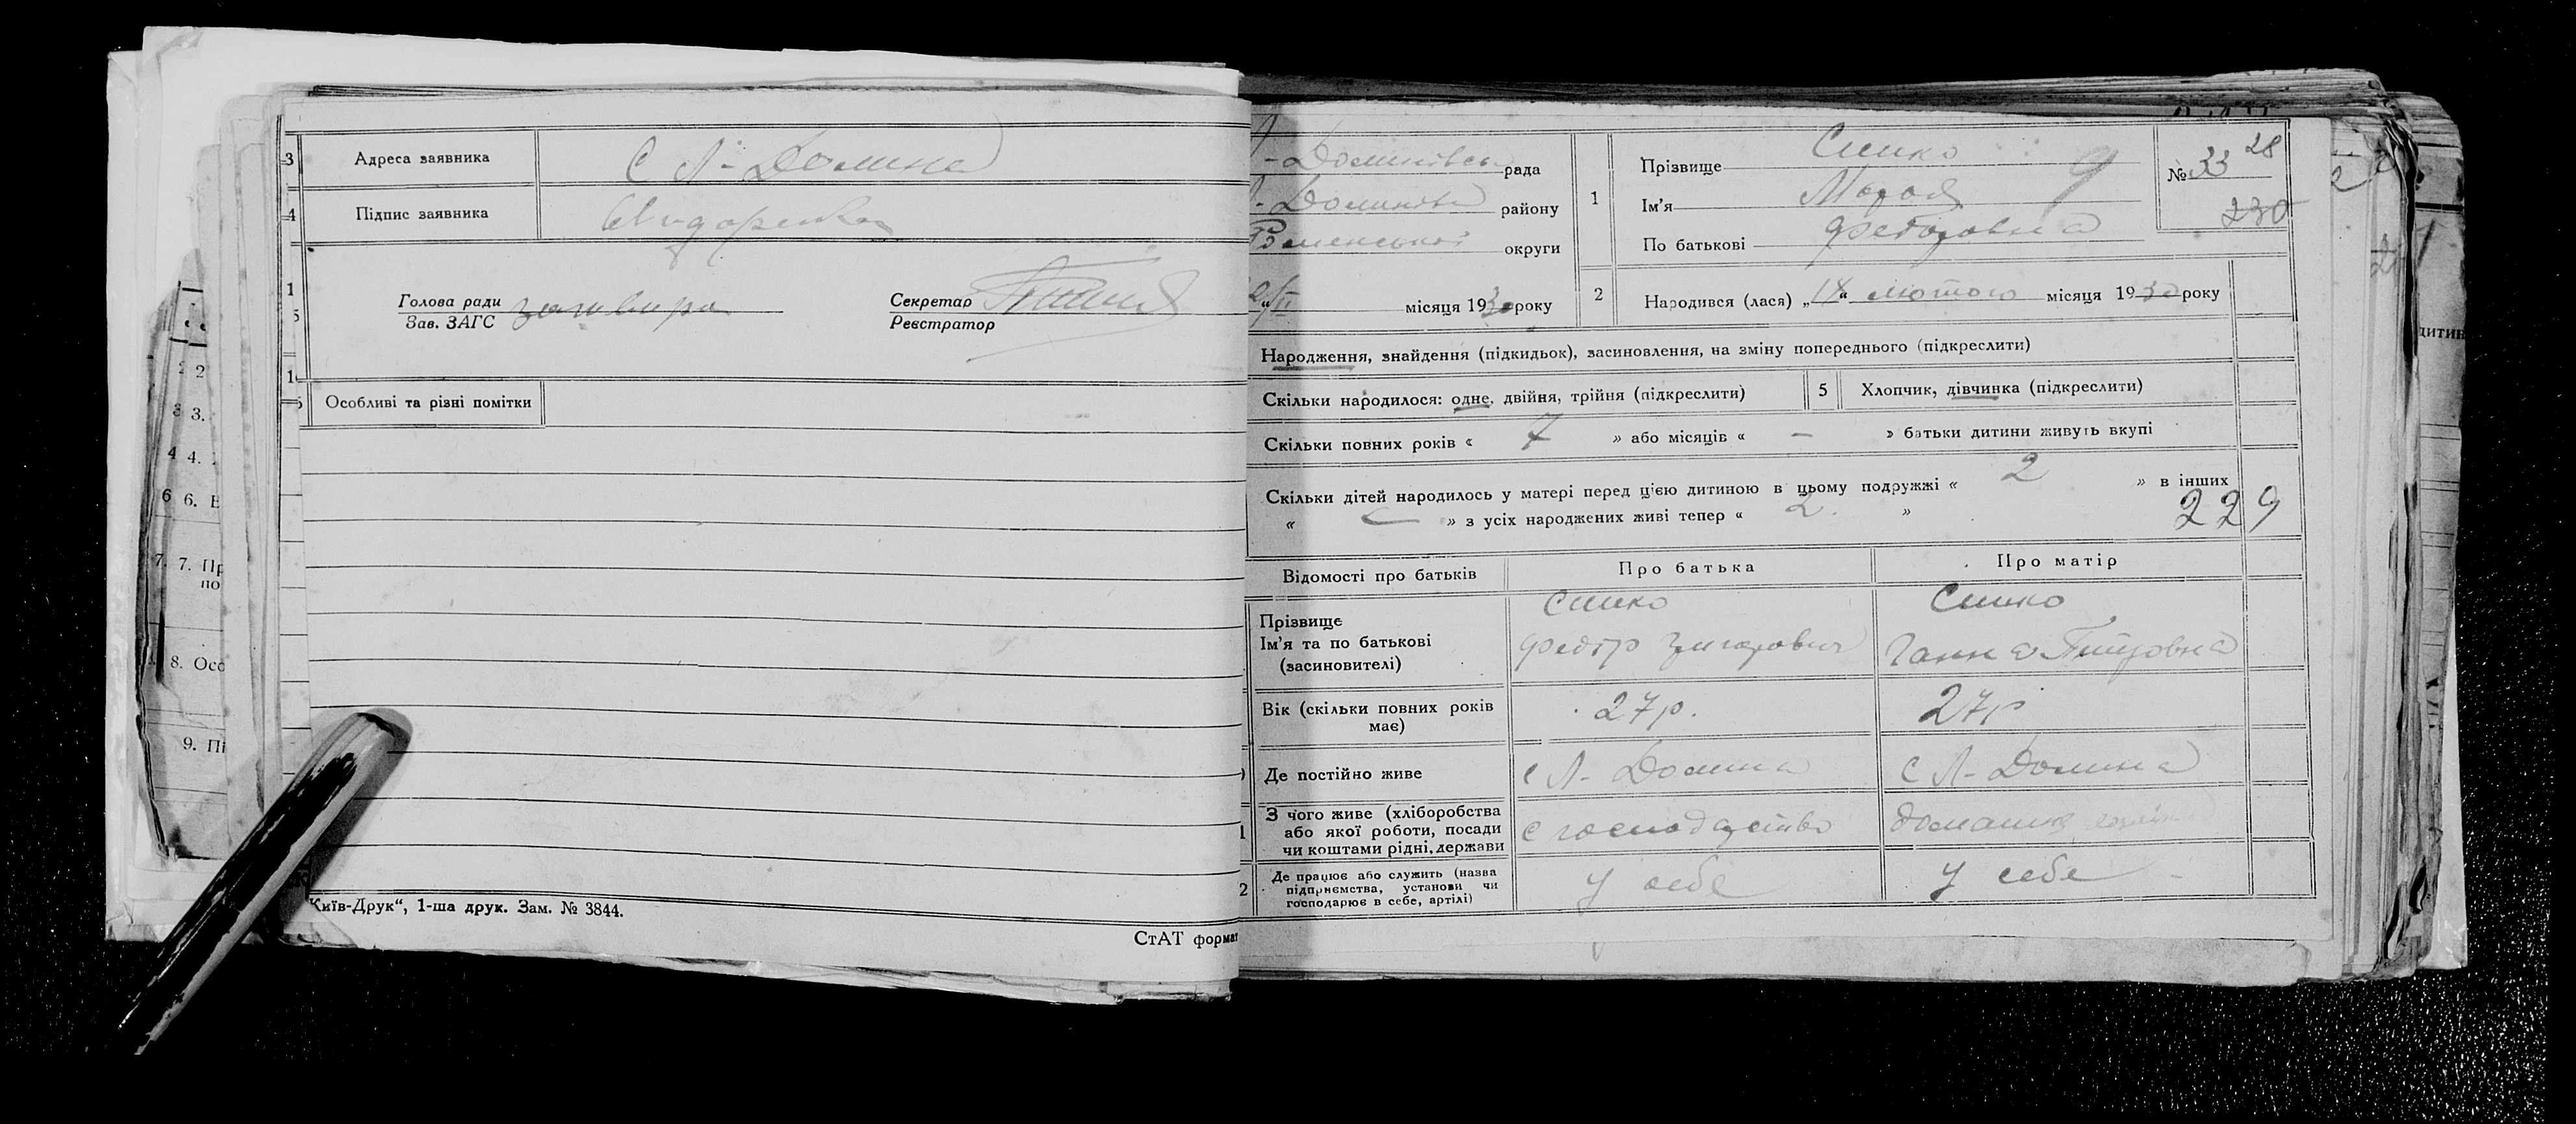 3 Адреса заявника С Л-Долина
4 Підпис заявника
Голова ради
Зав. ЗАГС
Секретар
Реєстратор
Особливі та різні помітки
Київ-Друк“, 1-ша друк. Зам. № 3844.
СтАТ формат
2
3.
4.
6. В
7. Пр
по
8. Осо
9. Пі
-Долинівськ рада
Долинівс району
Роменської округи
місяця 1930 року
1 Прізвище Сишко
Ім’я Марія
По батькові Федоровна
№ 33 28
230
2 Народився (лася) „18“ лютого місяця 1930 року
Народження, знайдення (підкидьок), засиновлення, на зміну попереднього (підкреслити)
Скільки народилося: одне, двійня, трійня (підкреслити) 5 Хлопчик, дівчинка (підкреслити)
Скільки повних років « 7 » або місяців « — » батьки дитини живуть вкупі
Скільки дітей народилось у матері перед цією дитиною в цьому подружжі « 2 » в інших
« — » з усіх народжених живі тепер « 2. »
229
Відомості про батьків Про батька Про матір
Прізвище Сишко Сишко
Ім’я та по батькові Федір Григорович Ганна Петровна
(засиновителі)
Вік (скільки повних років має) 27р. 27р
Де постійно живе с Л- Долина С Л- Долина
З чого живе (хліборобства або якої роботи, посади чи коштами рідні, держави с господарство домашнє
2 Де працює або служить (назва підприємства, установи чи господарює в себе, артілі) У себе У себе
дитин